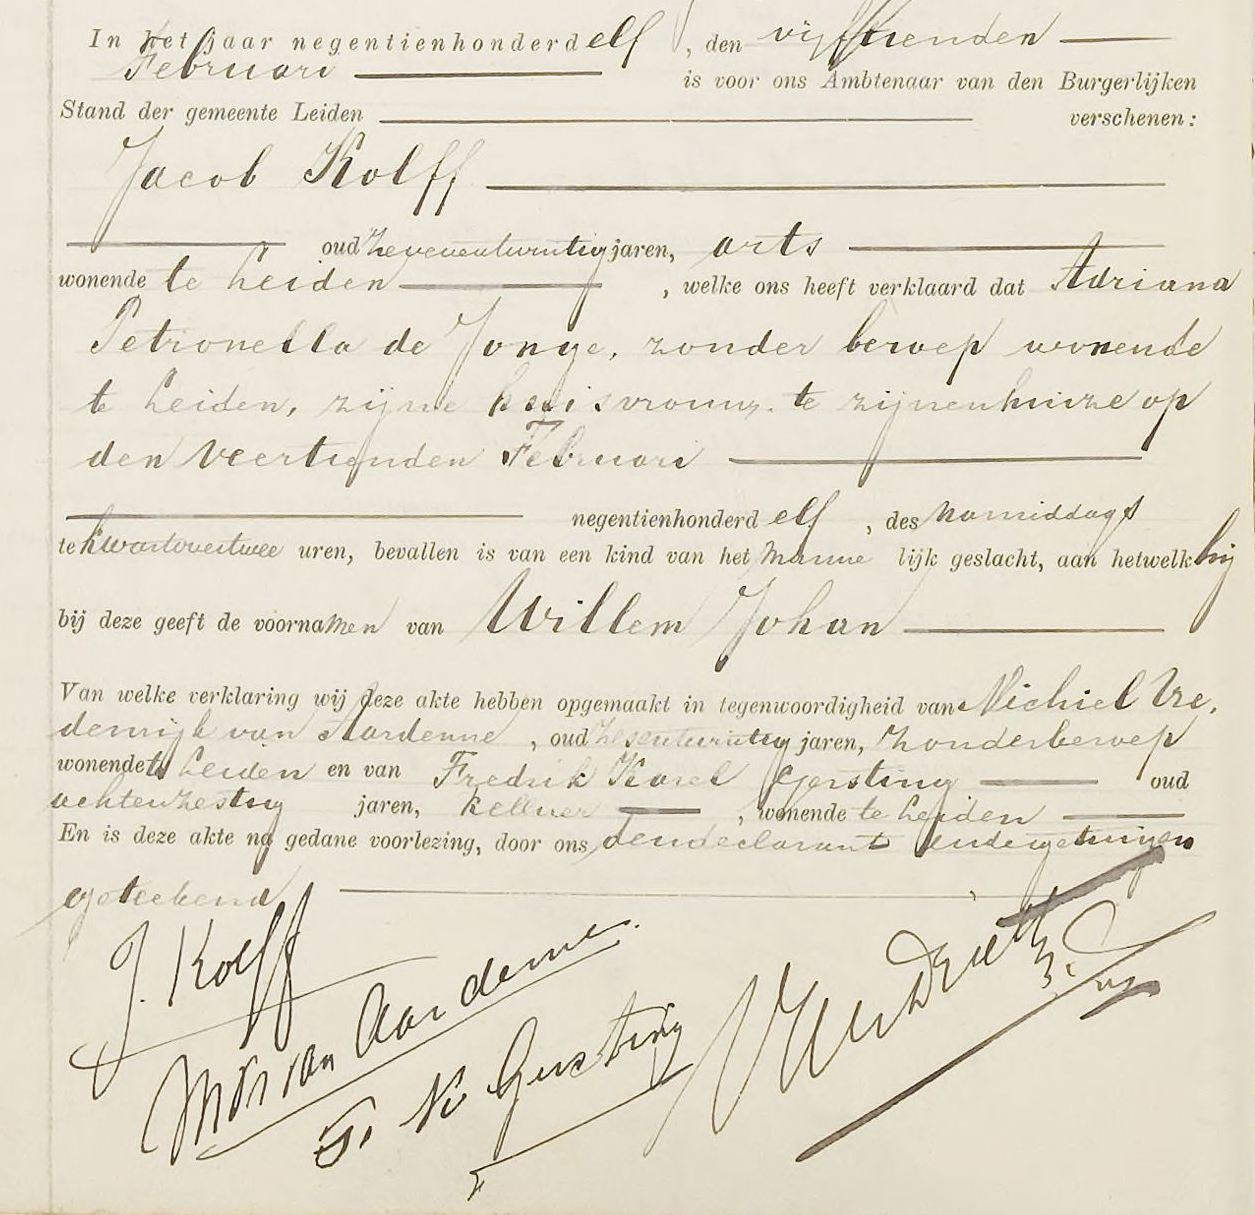 In het jaar negentienhonderd elf, den vijftienden
Februari is voor ons Ambtenaar van den Burgerlijken
Stand der gemeente Leiden verschenen:
Jacob Kolff
oud zevenentwintig jaren, arts
wonende te Leiden, welke ons heeft verklaard dat Adriana
Petronella de Jonge, zonder beroep wonende
te Leiden, zijne huisvrouw, te zijnenhuize op
den veertienden Februari
negentienhonderd elf, des namiddags
te kwartovertwee uren, bevallen is van een kind van het mannelijk geslacht, aan hetwelk hij
bij deze geeft de voornamen van Willem Johan
Van welke verklaring wij deze akte hebben opgemaakt in tegenwoordigheid van Michiel Vre,
derrijk van Aardenne, oud zesentwintig jaren, zonderberoep
wonende te Leiden en van Fredrik Karel Gersting oud
achtenzestig jaren, kellner, wonende te Leiden
En is deze akte na gedane voorlezing, door ons, dendeclarant endegetuigen
geteekend
J. Kolff
van Aardenne.
F. K Gersting